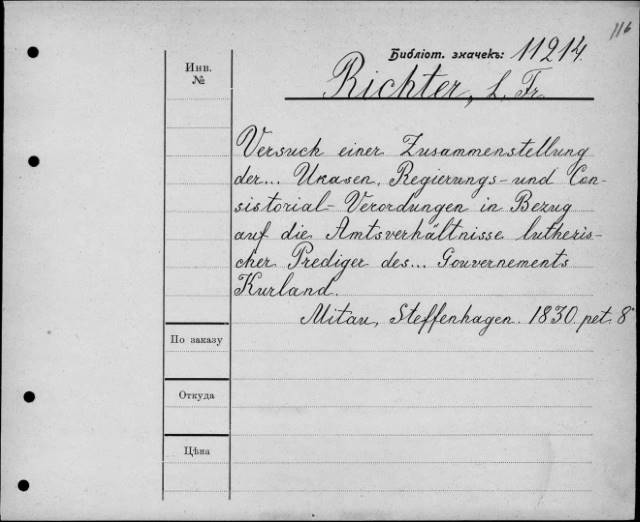 116
Библіот. значекъ: 11214.
Инв.
№
Richter, L. Fr.
Versuch einer Zusammenstellung
der... Ukasen, Regierungs- und Con-
sistorial-Verordungen in Bezug
auf die Amtsverhältnisse lutheris-
cher Prediger des... Gouvernements
Kurland.
Mitau, Steffenhagen. 1830. pet. 8°
По заказу
Откуда
Цѣна